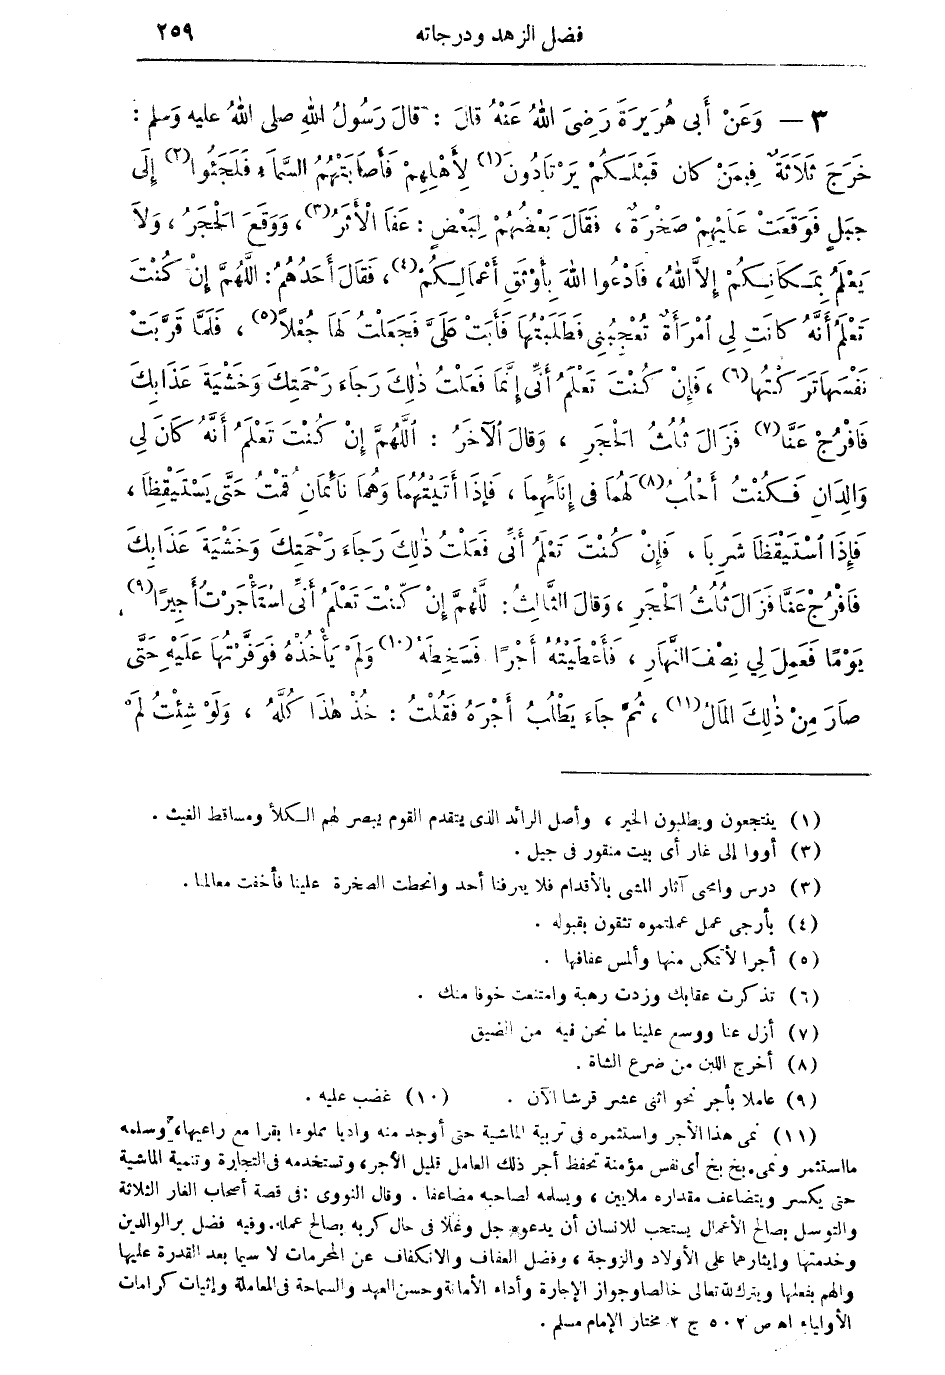 فضل الزهد ودرجاته ٢٥٩
٣ — وَعَنْ أَبِى هُرَيرَةَ رَضِىَ اللهُ عَنْهُ قالَ : قالَ رَسُولُ اللهِ صلى اللهُ عليه وَسلم :
خَرَجَ ثَلَاثَةٌ فِيمَنْ كان قَبْلَكُمْ يَرْتَادُونَ (١) لِأَهْلِهِمْ فَأَصَابَتْهُمُ السَّمَاءُ فَلَجَئُوا (٢) إِلَى
جبَلٍ فَوَقَعَتْ عَلَيْهِمْ صَخْرَةٌ ، فَقَالَ بَعْضُهُمْ لِبَعْضٍ : عَفَا الْأَثَرُ (٣) ، وَوَقَعَ الْحَجَرُ ، وَلَا
يَعْلَمُ بِمَكَانِكُمْ إِلَّا اللهُ ، فَادْعُوا اللهَ بِأَوْثَقِ أَعْمَالِكُمْ (٤) ، فَقَالَ أَحَدُهُمْ : اللَّهُمَّ إِنْ كُنْتَ
تَعْلَمُ أَنَّهُ كَانَتِ لِي امْرَأَةٌ تُعْجِبُنِى فَطَلَبْتُهَا فَأَبَتْ عَلَىَّ فَجَعَلْتُ لَهَا جُعْلاً (٥) ، فَلَمَّا قَرَّبَتْ
نَفْسَهَا تَرَكْتُهَا (٦) ، فَإِنْ كُنْتَ تَعْلَمُ أَنِّى إِنَّمَا فَعَلْتُ ذٰلِكَ رَجَاءَ رَحْمَتِكَ وَخَشْيَةَ عَذَابِكَ
فَافْرُجْ عَنَّا (٧) فَزَالَ ثُلُثُ الْحَجَرِ ، وَقَالَ الْآخَرُ : اَللَّهُمَّ إِنْ كُنْتَ تَعْلَمُ أَنَّهُ كَانَ لِي
وَالِدَانِ فَكُنْتُ أَحْلُبُ (٨) لَهُمَا فى إِنَائِهِمَا ، فَإِذَا أَتَيْتُهُمَا وَهُمَا نَائِمَانِ قُمْتُ حَتَّى يَسْتَيْقِظَا ،
فَإِذَا اسْتَيْقَظَا شَرِبَا ، فَإِنْ كُنْتَ تَعْلَمُ أَنِّى فَعَلْتُ ذٰلِكَ رَجَاءَ رَحْمَتِكَ وَخَشْيَةَ عَذَابِكَ
فَافْرُجْ عَنَّا فَزَالَ ثُلُثُ الْحَجَرِ ، وَقَالَ الثَّالِثُ : للَّهُمَّ إِنْ كُنْتَ تَعْلَمُ أَنِّى اسْتَأْجَرْتُ أَجِيرًا (٩)
يَوْمًا فَعَمِلَ لِي نِصْفَ النَّهَارِ ، فَأَعْطَيْتُهُ أَجْرًا فَسَخِطَهُ (١٠) وَلَمْ يَأْخُذْهُ فَوَفَّرْتُهَا عَلَيْهِ حَتَّى
صَارَ مِنْ ذٰلِكَ المَالُ (١١) ، ثُمَّ جَاءَ يَطْلُبُ أَجْرَهُ فَقُلْتُ : خُذْ هٰذَا كُلَّهُ ، وَلَوْ شِئْتُ لَمْ
(١) ينتجعون ويطلبون الخير ، وأصل الرائد الذى يتقدم القوم يبصر لهم الكلأ ومساقط الغيث .
(٣) أووا إلى غار أى بيت منقور فى جبل .
(٣) درس وامحى آثار المشى بالأقدام فلا يعرفنا أحد وانحطت الصخرة علينا فأخفت معالمنا .
(٤) بأرجى عمل عملتموه تثقون بقبوله .
(٥) أجرا لأتمكن منها وألمس عفافها .
(٦) تذكرت عقابك وزدت رهبة وامتنعت خوفا منك .
(٧) أزل عنا ووسع علينا ما نحن فيه من الضيق
(٨) أخرج اللبن من ضرع الشاة .
(٩) عاملا بأجر نحو اثنى عشر قرشا الآن . (١٠) غضب عليه .
(١١) نمى هذا الأجر واستثمره فى تربية الماشية حتى أوجد منه واديا مملوءا بقرا مع راعيها ، وسلمه
ما استثمر ونمى . بخ بخ أى نفس مؤمنة تحفظ أجر ذلك العامل قليل الأجر ، وتستخدمه فى التجارة وتنمية الماشية
حتى يكسر ويتضاعف مقداره ملايين ، ويسلمه لصاحبه مضاعفا . وقال النووى : فى قصة أصحاب الغار الثلاثة
والتوسل بصالح الأعمال يستحب للانسان أن يدعوه جل وعلا فى حال كربه بصالح عمله . وفيه فضل بر الوالدين
وخدمتها وإيثارهما على الأولاد والزوجة ، وفضل العفاف والانكفاف عن المحرمات لا سيما بعد القدرة عليها
والهم بفعلها ويترك لله تعالى خالصا وجواز الإجارة وأداء الأمانة وحسن العهد والسماحة فى المعاملة وإثبات كرامات
الأولياء اهـ ص ٥٠٢ ج ٢ مختار الإمام مسلم .